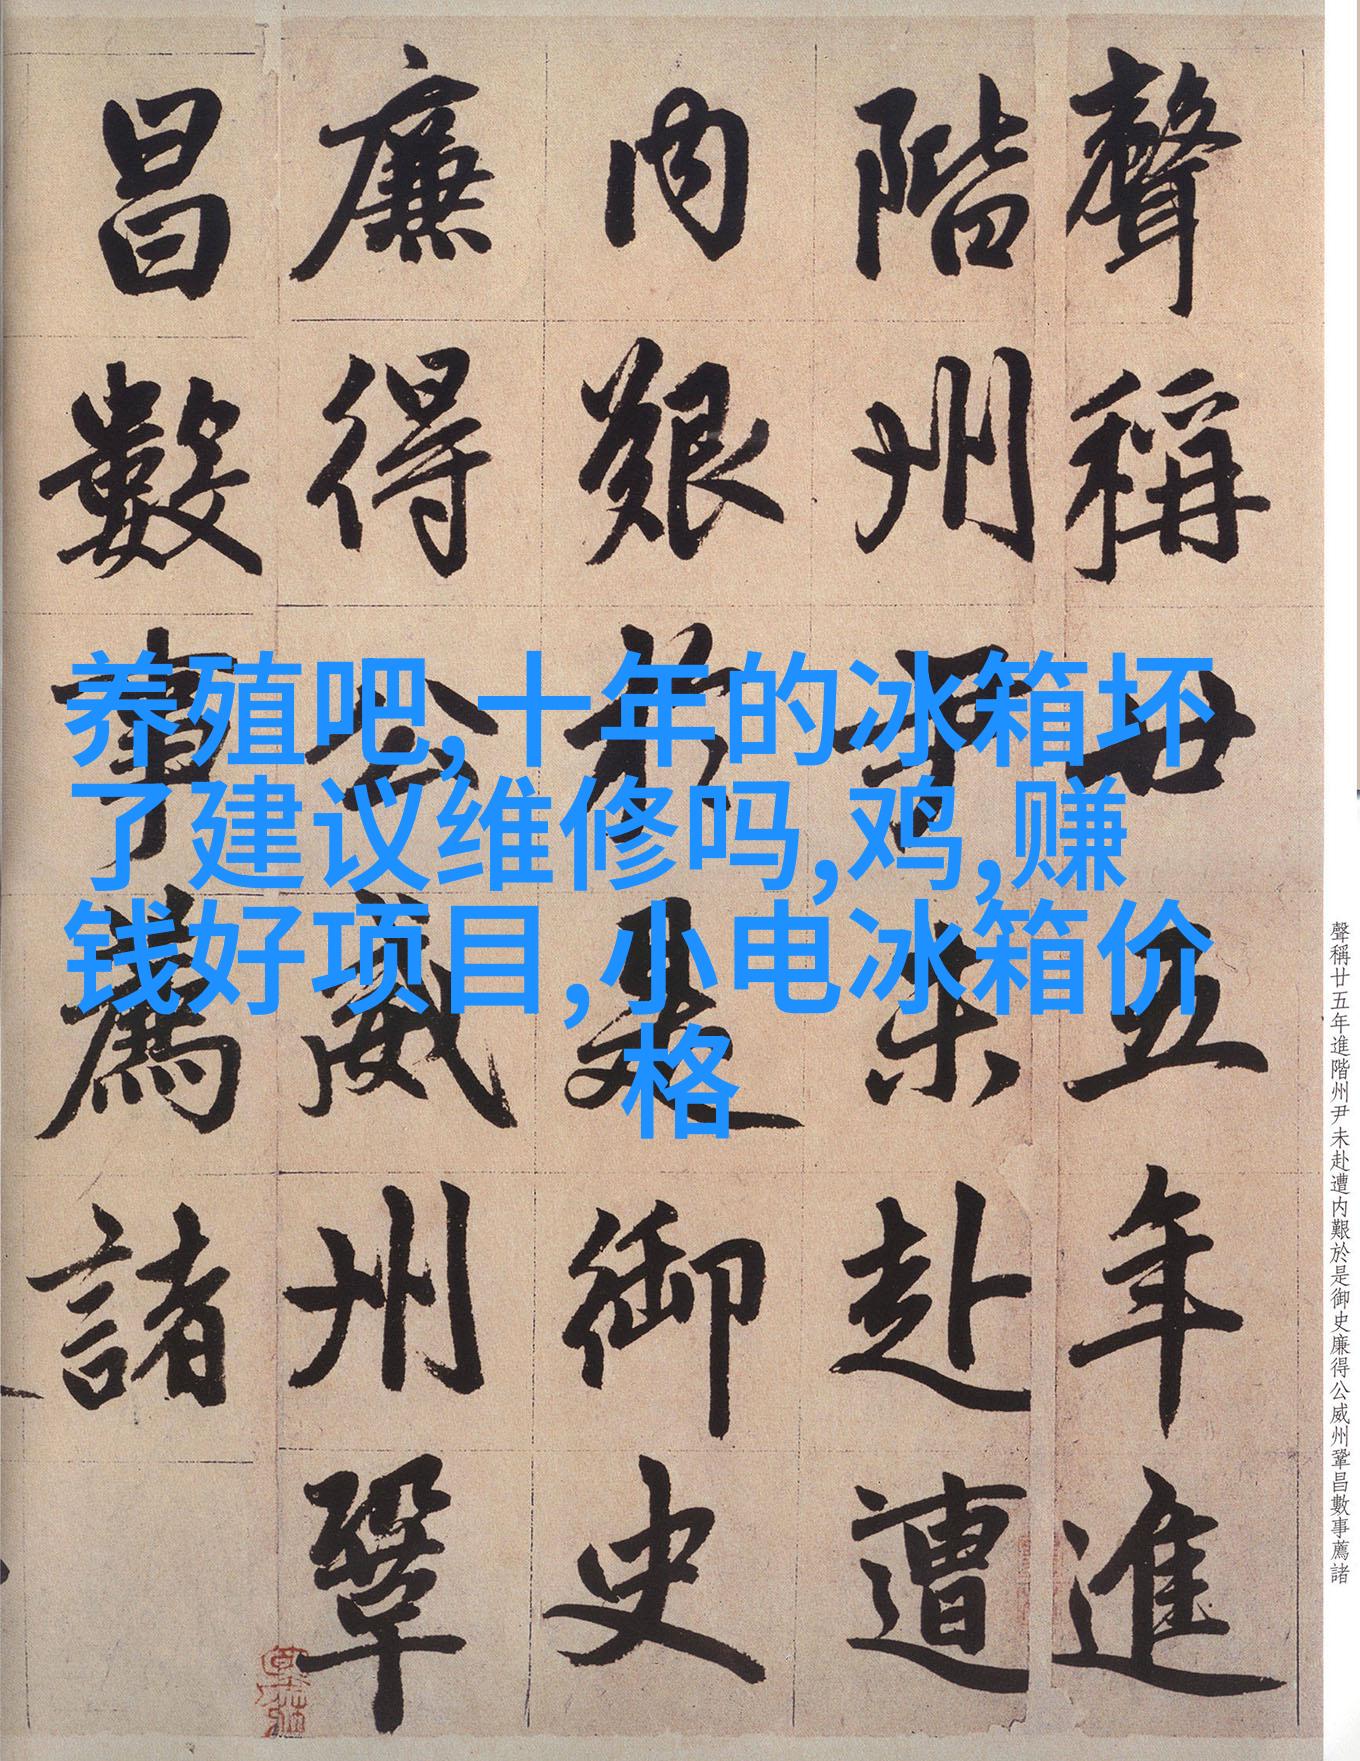 養殖吧,十年的冰箱坏
了建议维修吗,鸡,赚
钱好项目,小电冰箱价
格
聲稱廿五年進
階州尹未赴遭
内艱於是御史
廉得公威州鞏
昌數事薦諸
聲稱廿五年進階州尹未赴遭内艱於是御史廉得公威州鞏昌數事薦諸